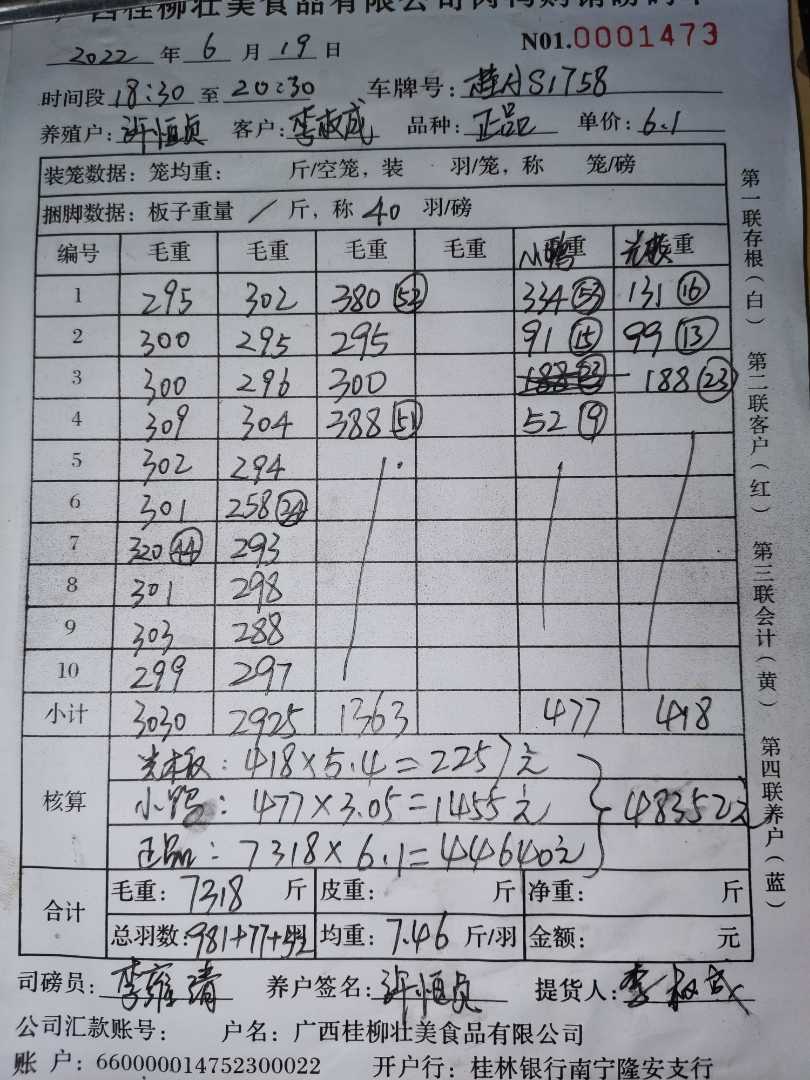 广西桂柳壮美食品有限公司肉鸭购销磅码单
2022 年 6 月 19 日 N01.0001473
时间段 18:30 至 20:30 车牌号: 桂A S1758
养殖户: 许恒贞 客户: 李叔成 品种: 正品 单价: 6.1
装笼数据: 笼均重: 斤/空笼, 装 羽/笼, 称 笼/磅
捆脚数据: 板子重量 / 斤, 称 40 羽/磅
编号 毛重 毛重 毛重 毛重 小鸭 重
1 295 302 380 (52) 334 (53) 131 (16)
2 300 295 295 91 (15) 99 (13)
3 300 296 300 188 (23) 188 (23)
4 309 304 388 (51) 52 (9)
5 302 294
6 301 258 (24)
7 320 (44) 293
8 301 298
9 303 288
10 299 297
小计 3030 2925 1363 477 418
核算
板: 418×5.4=2257元
小鸭: 477×3.05=1455元
正品: 7318×6.1=44640元
48352元
合计
毛重: 7318 斤 皮重: 斤 净重: 斤
总羽数: 981+77+52 均重: 7.46 斤/羽 金额: 元
司磅员: 李雍清 养户签名: 许恒贞 提货人: 李叔成
公司汇款账号: 户名: 广西桂柳壮美食品有限公司
账 户: 660000014752300022 开户行: 桂林银行南宁隆安支行
第一联存根(白) 第二联客户(红) 第三联会计(黄) 第四联养户(蓝)